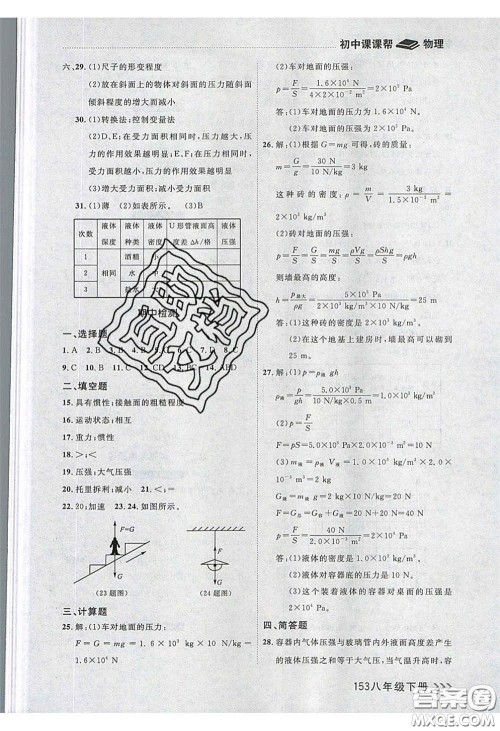 初中课课帮 物理
六、29. (1)尺子的形变程度
(2)放在斜面上的物体对斜面的压力随斜面
倾斜程度的增大而减小
30. (1)转换法；控制变量法
(2)D、E；在受力面积相同时，压力越大，压力的
作用效果越明显；E、F；在压力相同时，受力面
积越小，压力的作用效果越明显
(3)增大受力面积；减小受力面积
31. (1)薄 (2)如表所示。 (3)B
次数 液体深度 液体种类 液体密度 U形管液面高度差Δh/格 液体压强
1 相同 酒精 小
2 水
3 盐水
期中检测
一、选择题
1. A 2. B 3.
9. C 10. D 13. BC 14. ABD
二、填空题
15. 具有惯性；接触面的粗糙程度
16. 运动状态；相互
17. 重力；惯性
18. >；<
19. 压强；大气压强
20. 托里拆利；减小 21. <；=
22. 20；加速 23. 24. 如图所示。
F=G
G
(23题图)
F
G
(24题图)
三、计算题
25. 解：(1)车对地面的压力：
F=G=mg=1.6×10³ kg×10 N/kg=
1.6×10⁴ N
(2)车对地面的压强：
p=F/S=1.6×10⁴ N/(4×2×10⁻² m²)=2×10⁵ Pa
答：(1)车对地面的压力为 1.6×10⁴ N。
(2)车对地面的压强为 2×10⁵ Pa。
26. 解：(1)根据 G=mg 可得，砖的质量：
m=G/g=30 N/(10 N/kg)=3 kg
这种砖的密度：ρ=m/V=3 kg/(1.5×10⁻³ m³)=
2×10³ kg/m³
(2)砖对地面的压强：
p=F/S=G/S=mg/S=ρVg/S=ρShg/S=ρgh
则墙最高的高度：
h=p最大/ρg=5×10⁵ Pa/(2×10³ kg/m³×10 N/kg)=25 m
答：(1)这种砖的密度为 2×10³ kg/m³。
(2)在这个地基上建房时，墙最高可以砌
25 m。
27. 解：(1)ρ液=p/gh=5.0×10³ Pa/(10 N/kg×0.5 m)=
1.0×10³ kg/m³
(2)p=F/S
F=pS=5.0×10³ Pa×2.0×10⁻³ m²=10 N
(3)m液=ρ液V液=1.0×10³ kg/m³×2.0×
10⁻³ m³=2 kg
F=G总=G液+G容=m液g+G容=2 kg×
10 N/kg+20 N=40 N
p=F/S=40 N/(2.0×10⁻³ m²)=2×10⁴ Pa
答：(1)液体的密度是 1.0×10³ kg/m³。
(2)液体对容器底的压力是 10 N。
(3)这个装着液体的容器对桌面的压强是
2×10⁴ Pa。
四、简答题
28. 容器内气体压强与玻璃管内外液面高度差产生
的液体压强之和等于大气压，当气温升高时，容
153八年级下册
答案圈
MXQE.COM